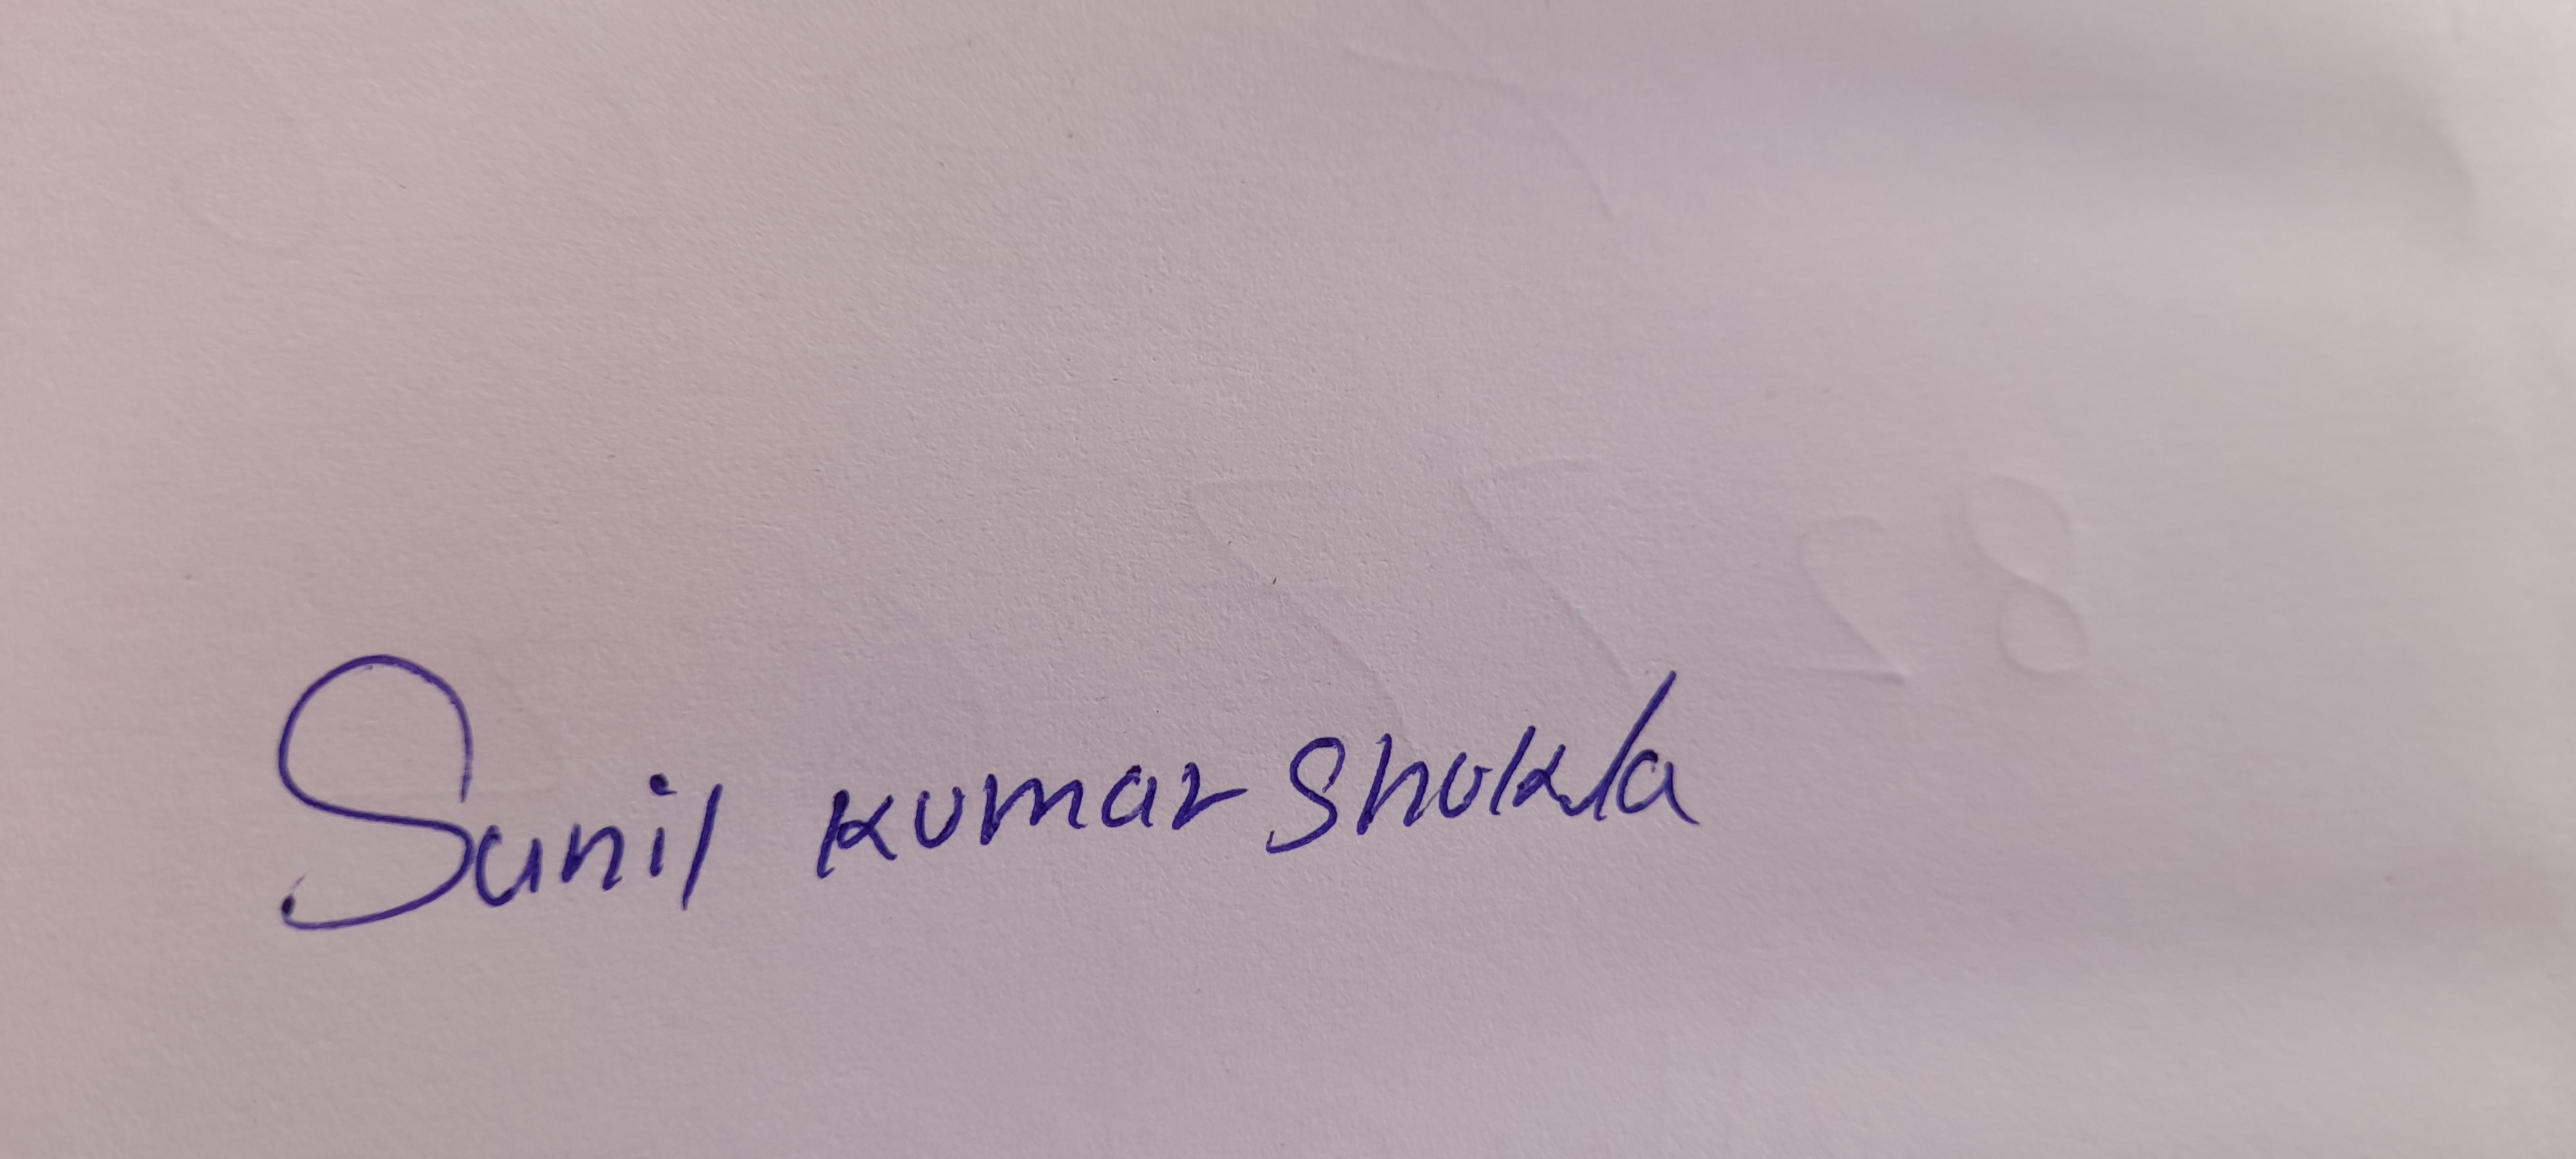 Sunil Kumar Shukla